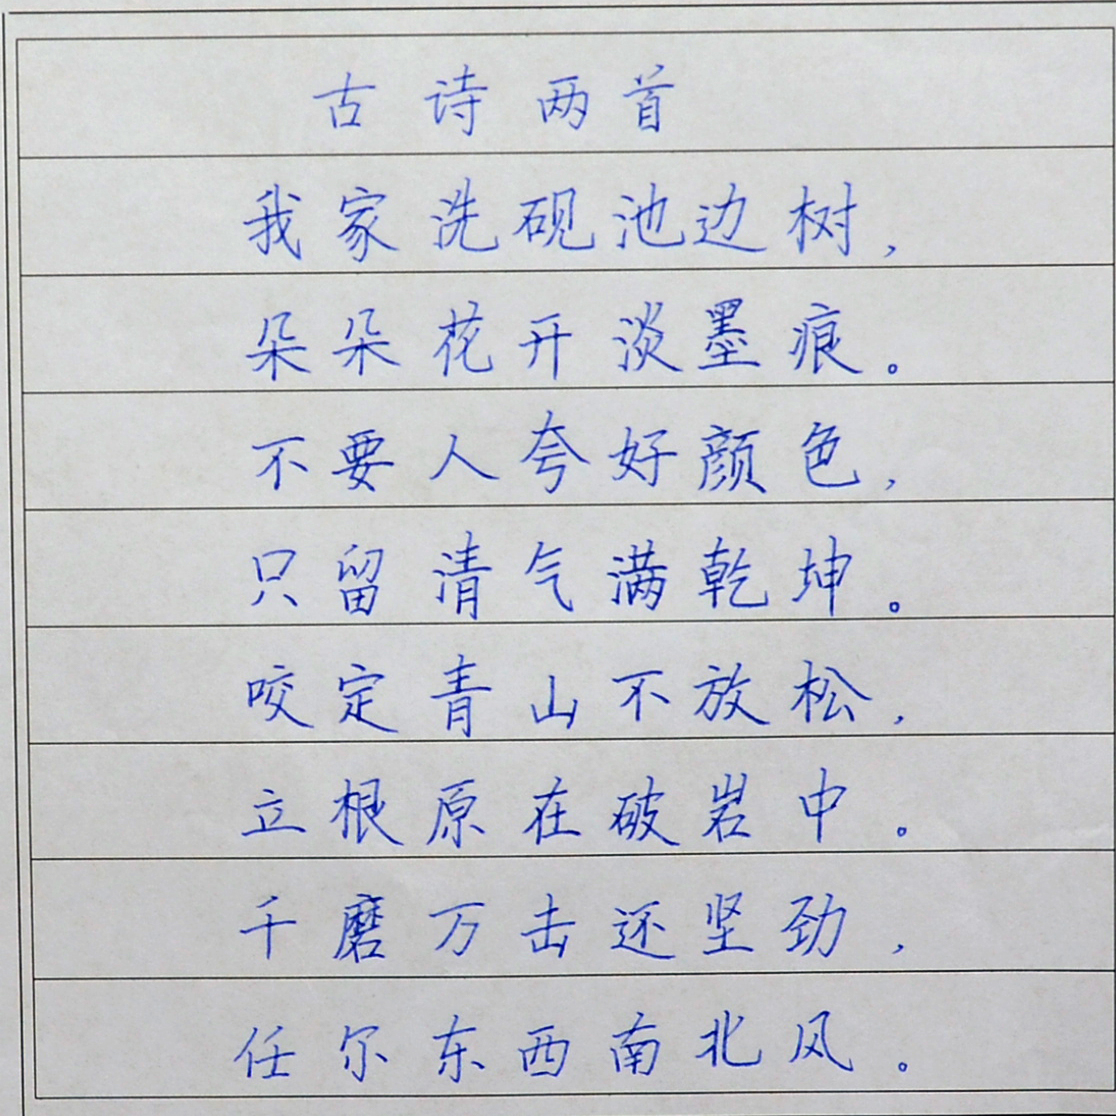 古诗两首
我家洗砚池边树，
朵朵花开淡墨痕。
不要人夸好颜色，
只留清气满乾坤。
咬定青山不放松，
立根原在破岩中。
千磨万击还坚劲，
任尔东西南北风。